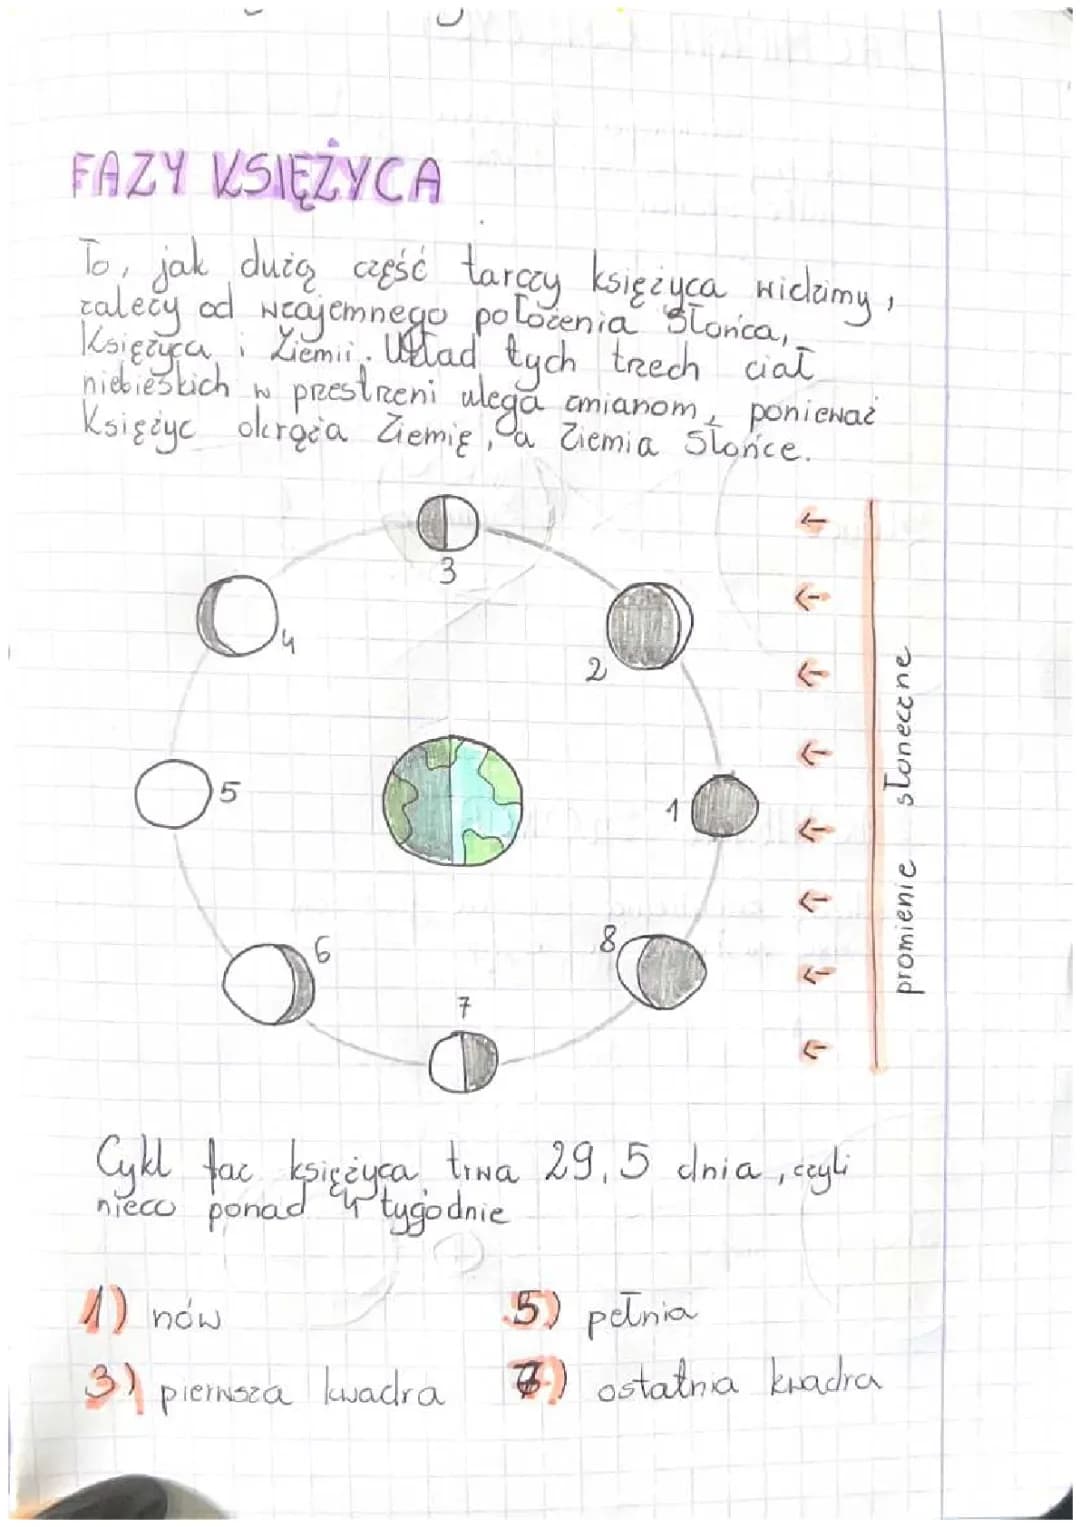 FAZY KSIĘŻYCA
To, jak dużą część tarczy księżyca widzimy,
zależy od wzajemnego położenia Słońca,
Księżyca i Ziemii. Układ tych trzech ciał
niebieskich w przestrzeni ulega zmianom, ponieważ
Księżyc okrąża Ziemię, a Ziemia Słońce.
3
4
2
5
1
6
8
7
promienie słoneczne
Cykl faz księżyca trwa 29,5 dnia, czyli
nieco ponad 4 tygodnie
1) nów
5) pełnia
3) pierwsza kwadra
7) ostatnia kwadra